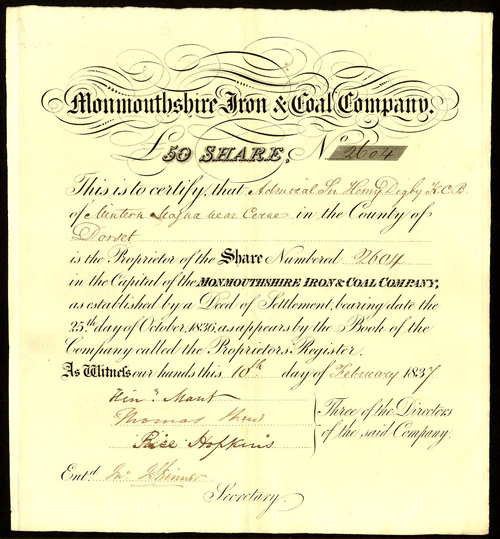 Monmouthshire Iron & Coal Company.
£50 SHARE, No. 2604
This is to certify, that Admiral Sir Henry Digby K.C.B.
of Mintern Magna near Cerne in the County of
Dorset
is the Proprietor of the Share Numbered 2604
in the Capital of the MONMOUTHSHIRE IRON & COAL COMPANY,
as established by a Deed of Settlement, bearing date the
25th day of October, 1836, as appears by the Book of the
Company called the Proprietors Register.
As Witness our hands this 10th day of February 1837
Mant
Thomas
Rice Hopkins
Three of the Directors
of the said Company.
Entd. Jno
Secretary.